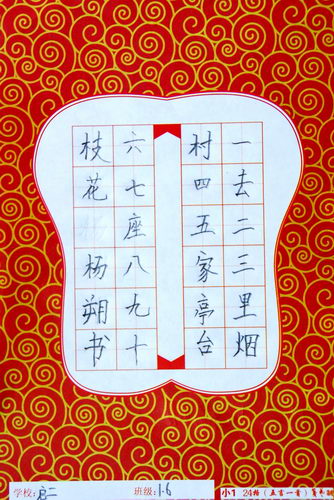 一去二三里烟
村四五家亭台
六七座八九十
枝花杨朔书
学校: 班级: 1.6 小1 24格(五言一首)